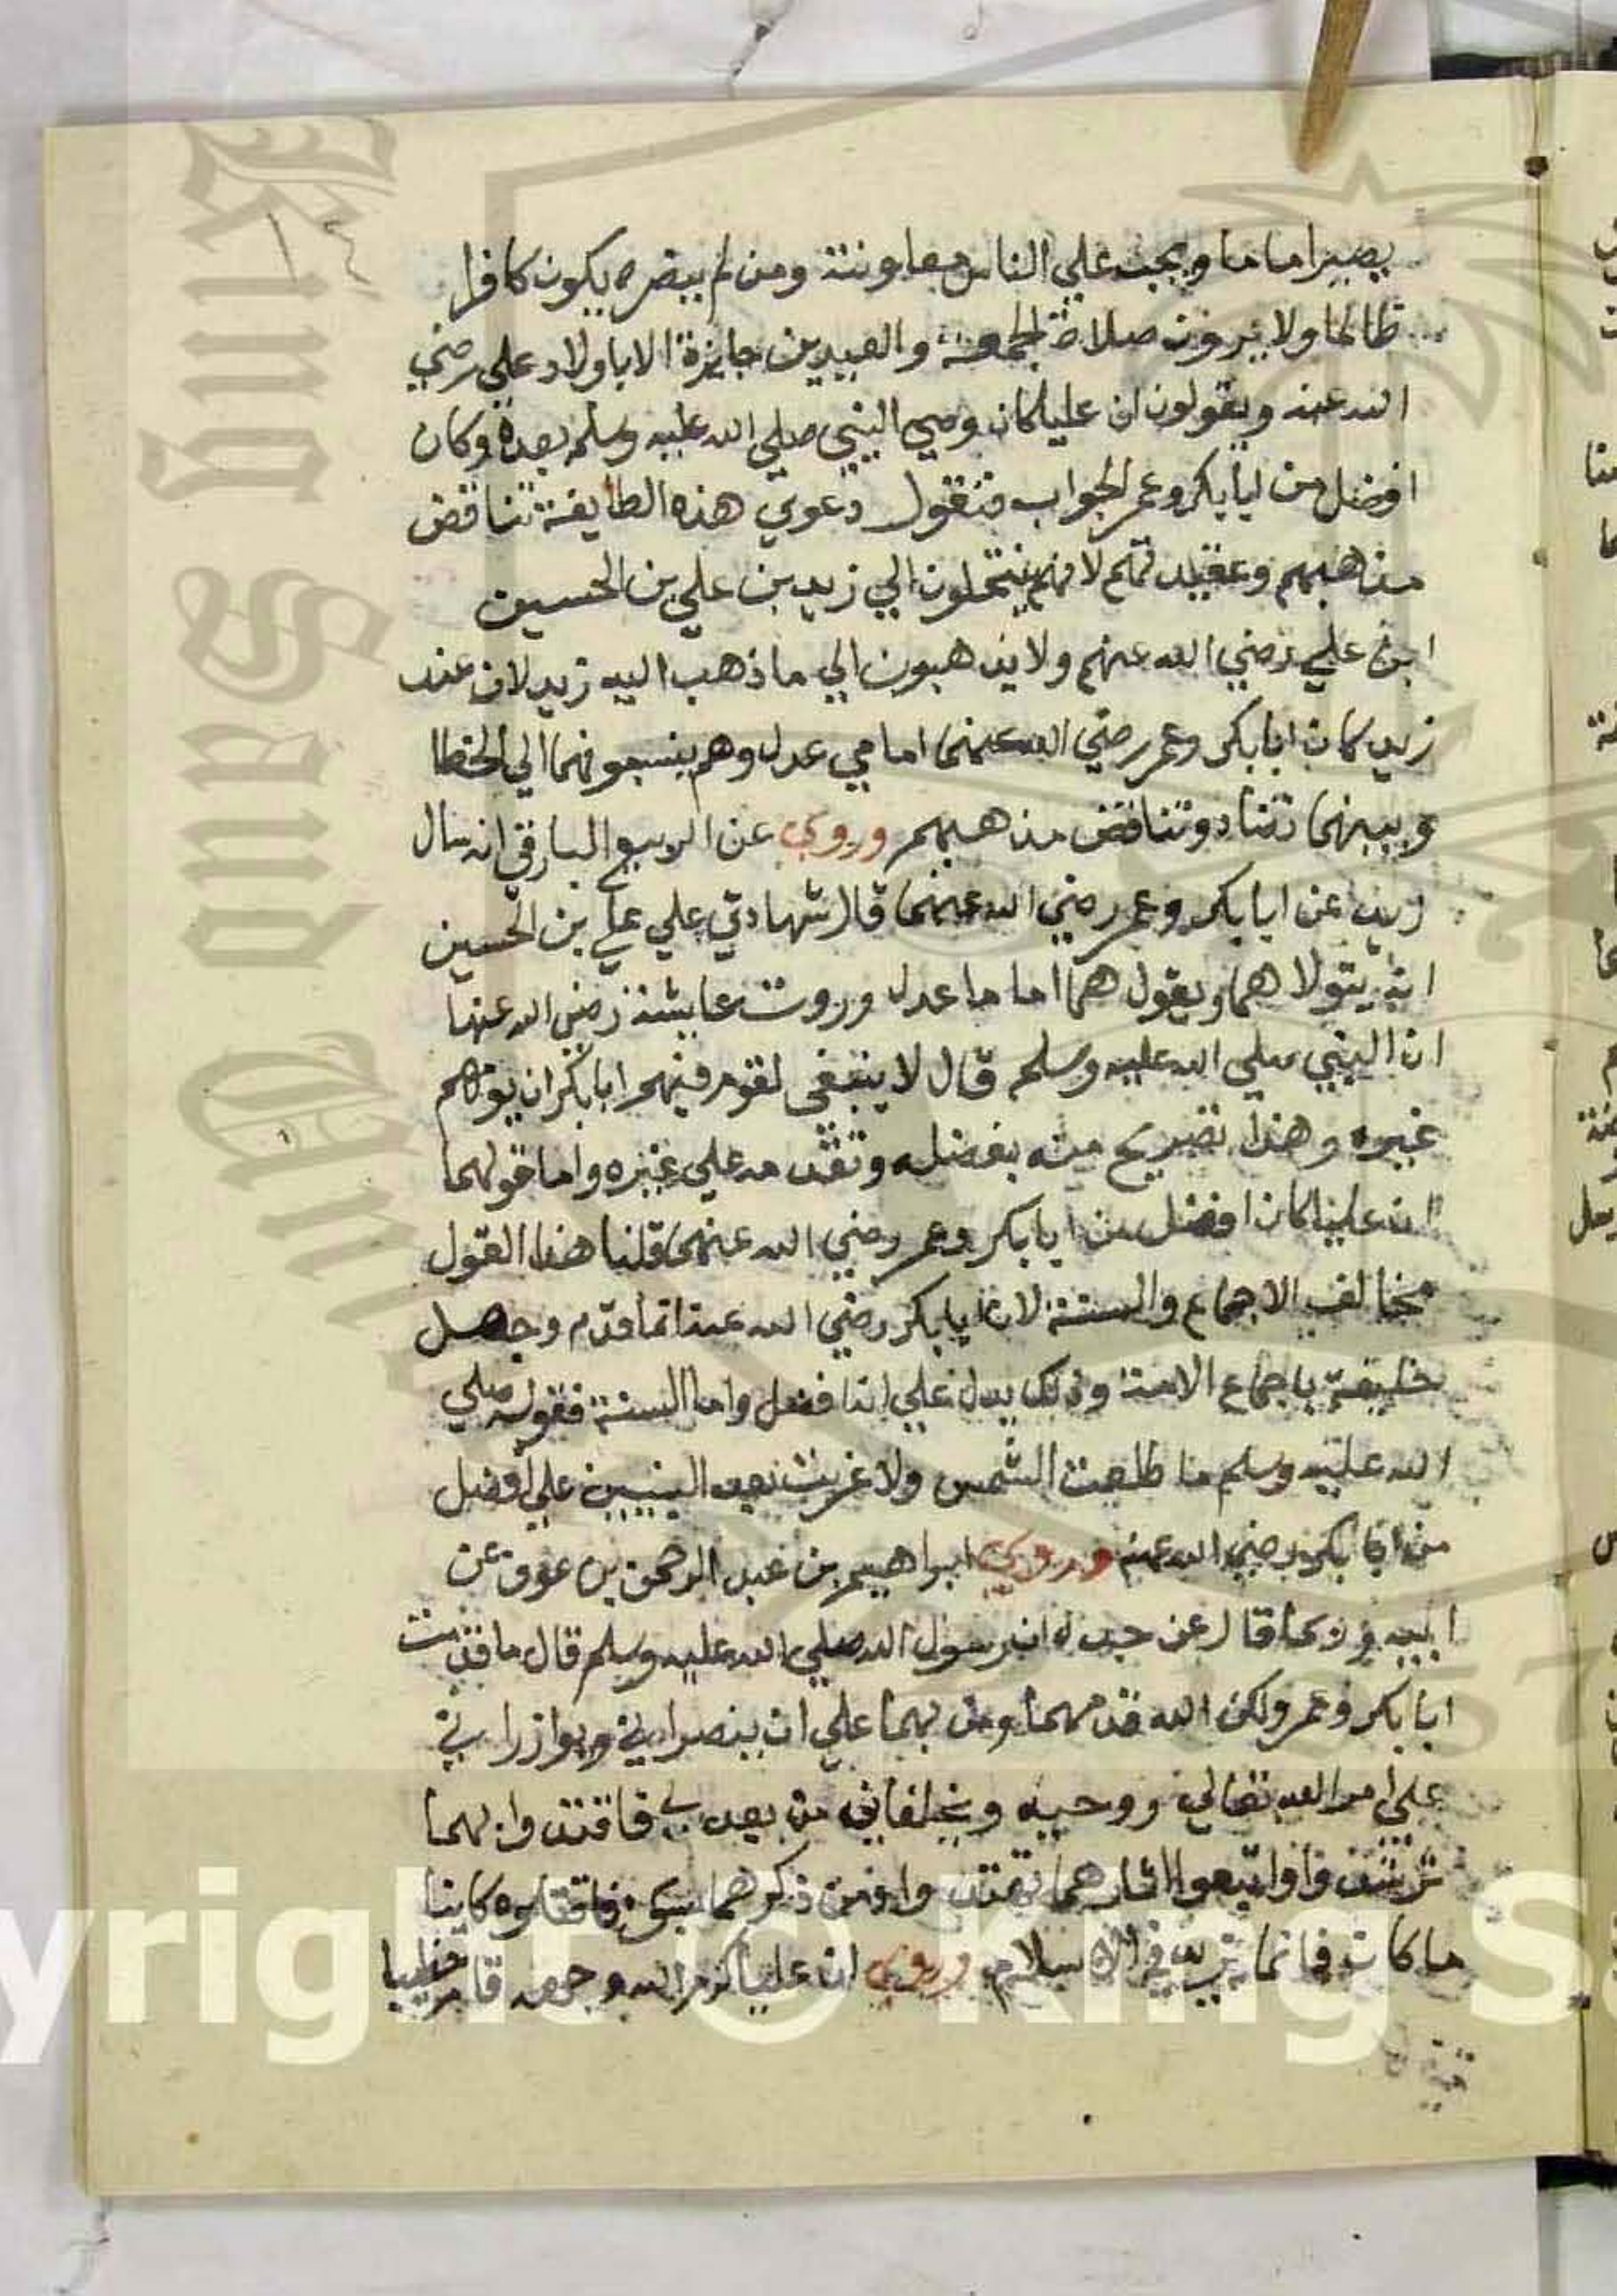 يصير اماما ويجب علي الناس معاونته ومن لم ينصره يكون كافرا
ظالما ولا يرون صلاة الجمعة والعيدين جايزة الا باولاد علي رضي
الله عنه ويقولون ان عليا كان وصي النبي صلي الله عليه وسلم بعده وكان
افضل من ابابكر وعمر الجواب فنقول دعوي هذه الطايفة تناقض
مذاهبهم وعقيدتهم لانهم ينتحلون الي زيد بن علي بن الحسين
ابن علي رضي الله عنهم ولا يذهبون الي ما ذهب اليه زيد لان عند
زيد كان ابابكر وعمر رضي الله عنهما امامي عدل وهم ينسبونهما الي الخطا
وبينهما تضاد وتناقض مذهبهم وروي عن الربيع البارقي انه سال
زيدا عن ابابكر وعمر رضي الله عنهما قال شهادتي علي علي بن الحسين
انه يتولاهما ويقول هما اماما عدل وروت عايشة رضي الله عنها
ان النبي صلي الله عليه وسلم قال لا ينبغي لقوم فيهم ابابكر ان يؤمهم
غيره وهذا تصريح منه بفضله وتقدمه علي غيره واما قولهما
ان عليا كان افضل من ابابكر وعمر رضي الله عنهما قلنا هذا القول
مخالف الاجماع والسنة لان ابابكر رضي الله عنه انما قدم وجعل
خليفة باجماع الامة وذلك يدل علي انه افضل واما السنة فقوله صلي
الله عليه وسلم ما طلعت الشمس ولا غربت بعد النبيين علي افضل
من ابابكر رضي الله عنه وروي ابراهيم بن عبد الرحمن بن عوف عن
ابيه وربما قال عن جده ان رسول الله صلي الله عليه وسلم قال ما قدمت
ابابكر وعمر ولكن الله قدمهما ومن بهما علي ان ينصراني ويوازراني
علي امر الله تعالي ووحيه ويخلفاني من بعدي فاقتدوا بهما
ترشدوا واتبعوا اثارهما تهتدوا فمن ذكرهما بسوء فاقتلوه كاينا
ما كان فانما يريد في الاسلام وروي ان عليا كرم الله وجهه قام خطيبا